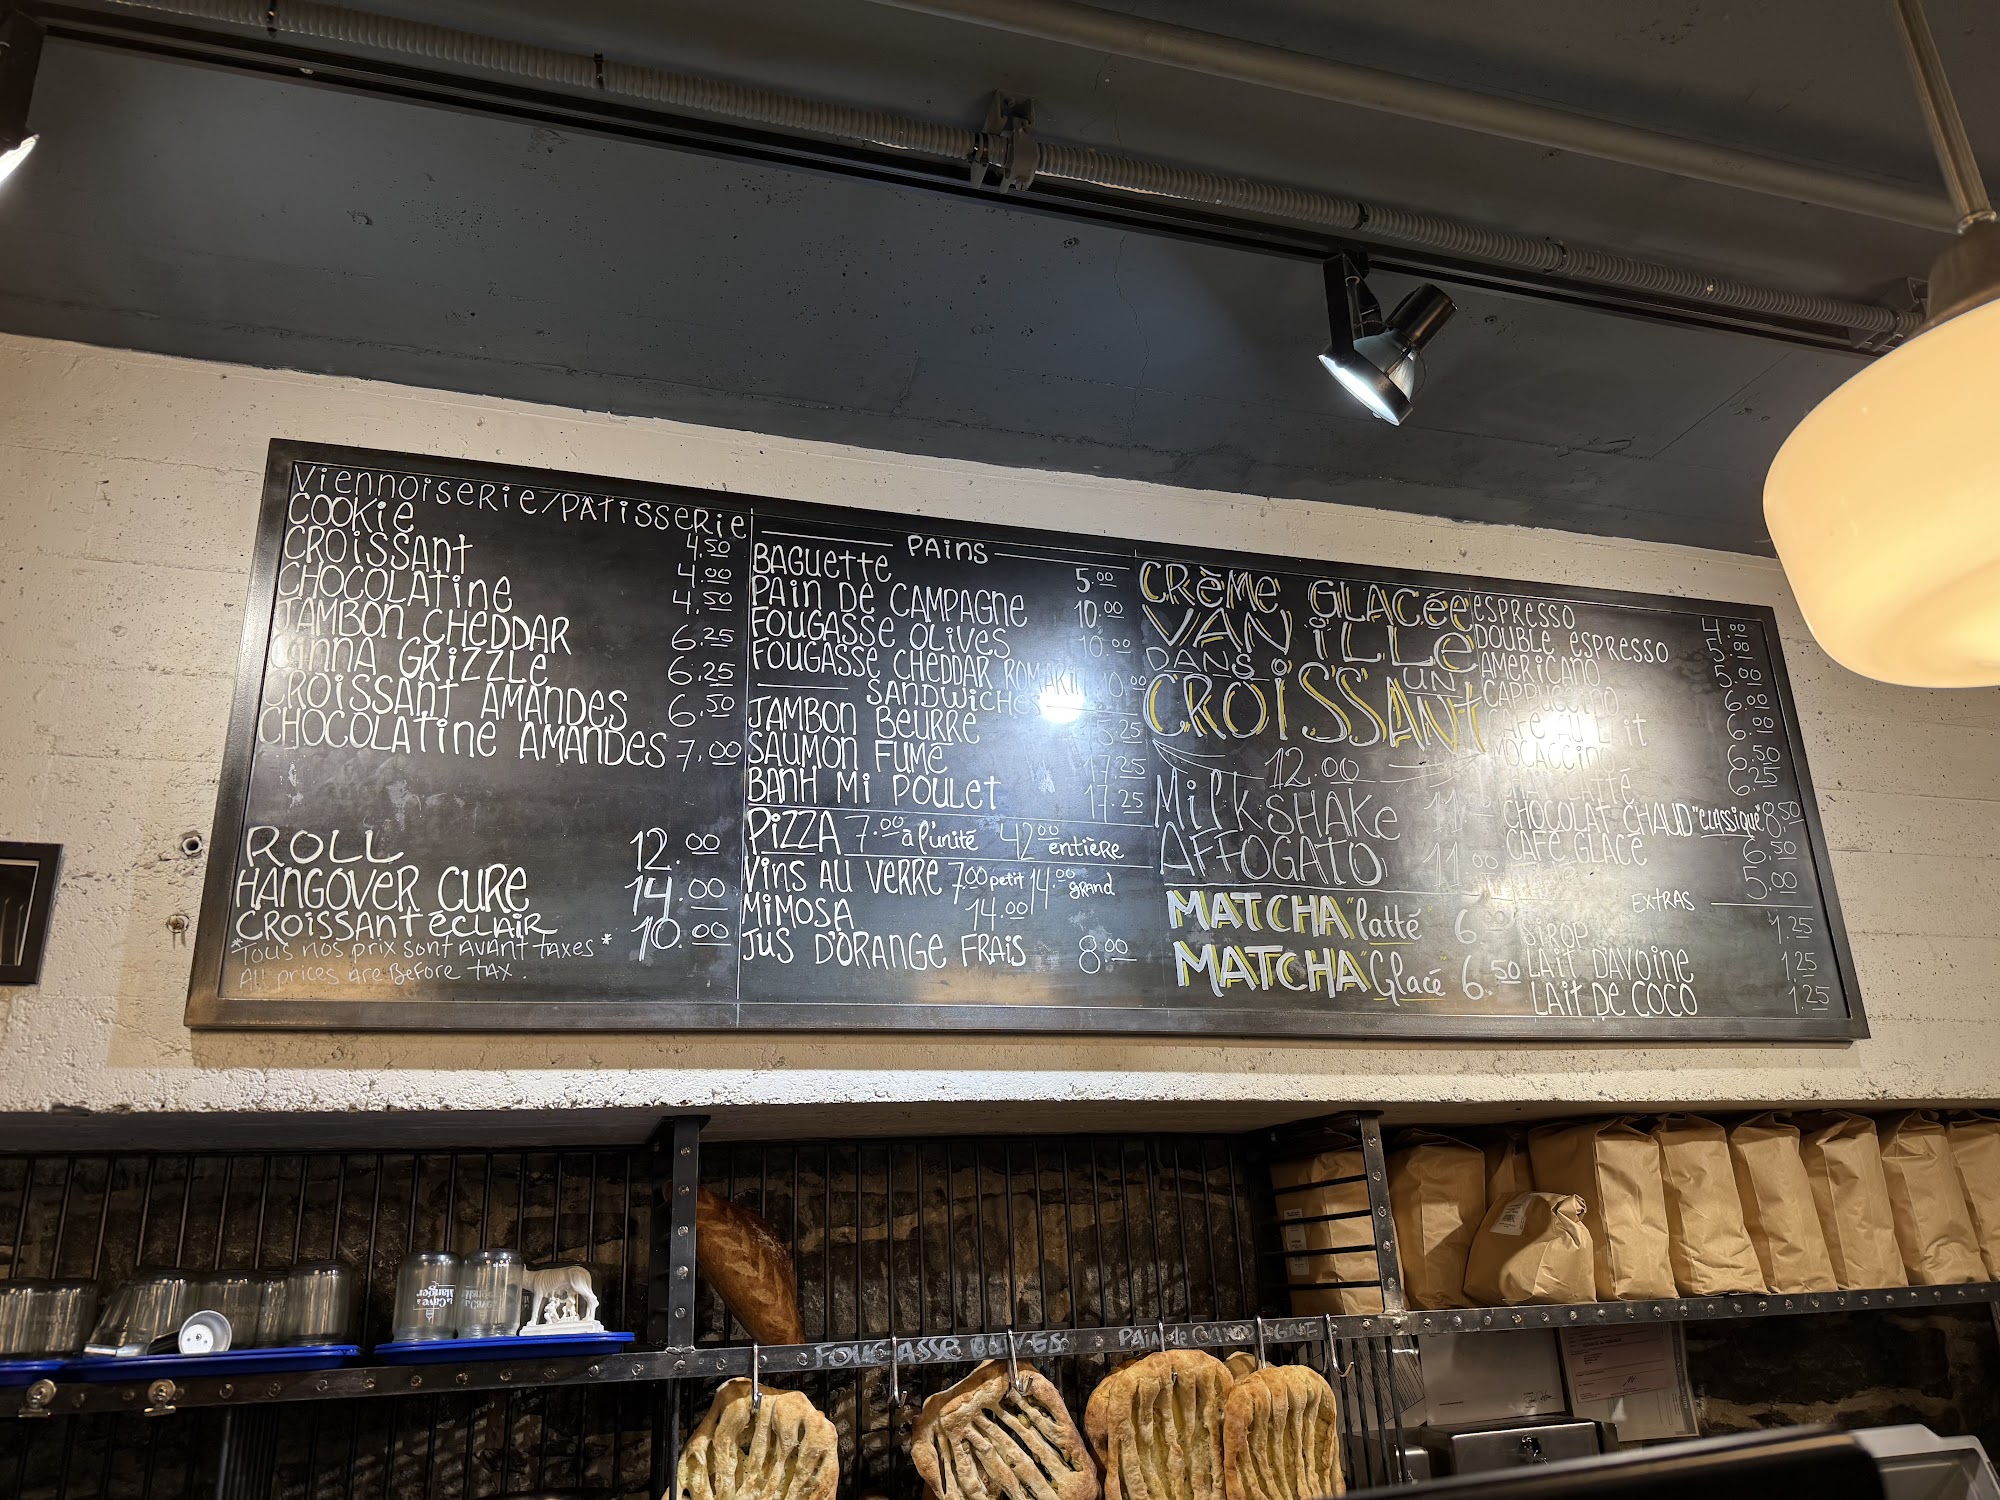 Viennoiserie/Pâtisserie
COOKIE 4.50
CROISSANT 4.00
CHOCOLATINE 4.50
JAMBON CHEDDAR 6.25
CINNA GRIZZLE 6.25
CROISSANT AMANDES 6.50
CHOCOLATINE AMANDES 7.00
ROLL 12.00
HANGOVER CURE 14.00
CROISSANT ÉCLAIR 10.00
*Tous nos prix sont avant taxes*
All prices are before tax.
PAINS
BAGUETTE 5.00
PAIN DE CAMPAGNE 10.00
FOUGASSE OLIVES 10.00
FOUGASSE CHEDDAR ROMARIN 10.00
SANDWICHES
JAMBON BEURRE 5.25
SAUMON FUMÉ 17.25
BANH MI POULET 17.25
PIZZA 7.00 à l'unité 42.00 entière
VINS AU VERRE 7.00 petit 14.00 grand
MIMOSA 14.00
JUS D'ORANGE FRAIS 8.00
CRÈME GLACÉE
VANILLE
DANS UN
CROISSANT
12.00
MILKSHAKE 11
AFFOGATO 11.00
MATCHA "latté" 6.00
MATCHA "Glacé" 6.50
ESPRESSO 4.00
DOUBLE ESPRESSO 5.00
AMERICANO 5.00
CAPPUCCINO 6.00
CAFÉ AU LAIT 6.00
MOCACCINO 6.50
LATTÉ 6.25
CHOCOLAT CHAUD "CLASSIQUE" 8.50
CAFÉ GLACÉ 6.50
5.00
EXTRAS
SIROP 1.25
LAIT D'AVOINE 1.25
LAIT DE COCO 1.25
la Cave à Manger
FOUGASSE OLIVES
PAIN de CAMPAGNE